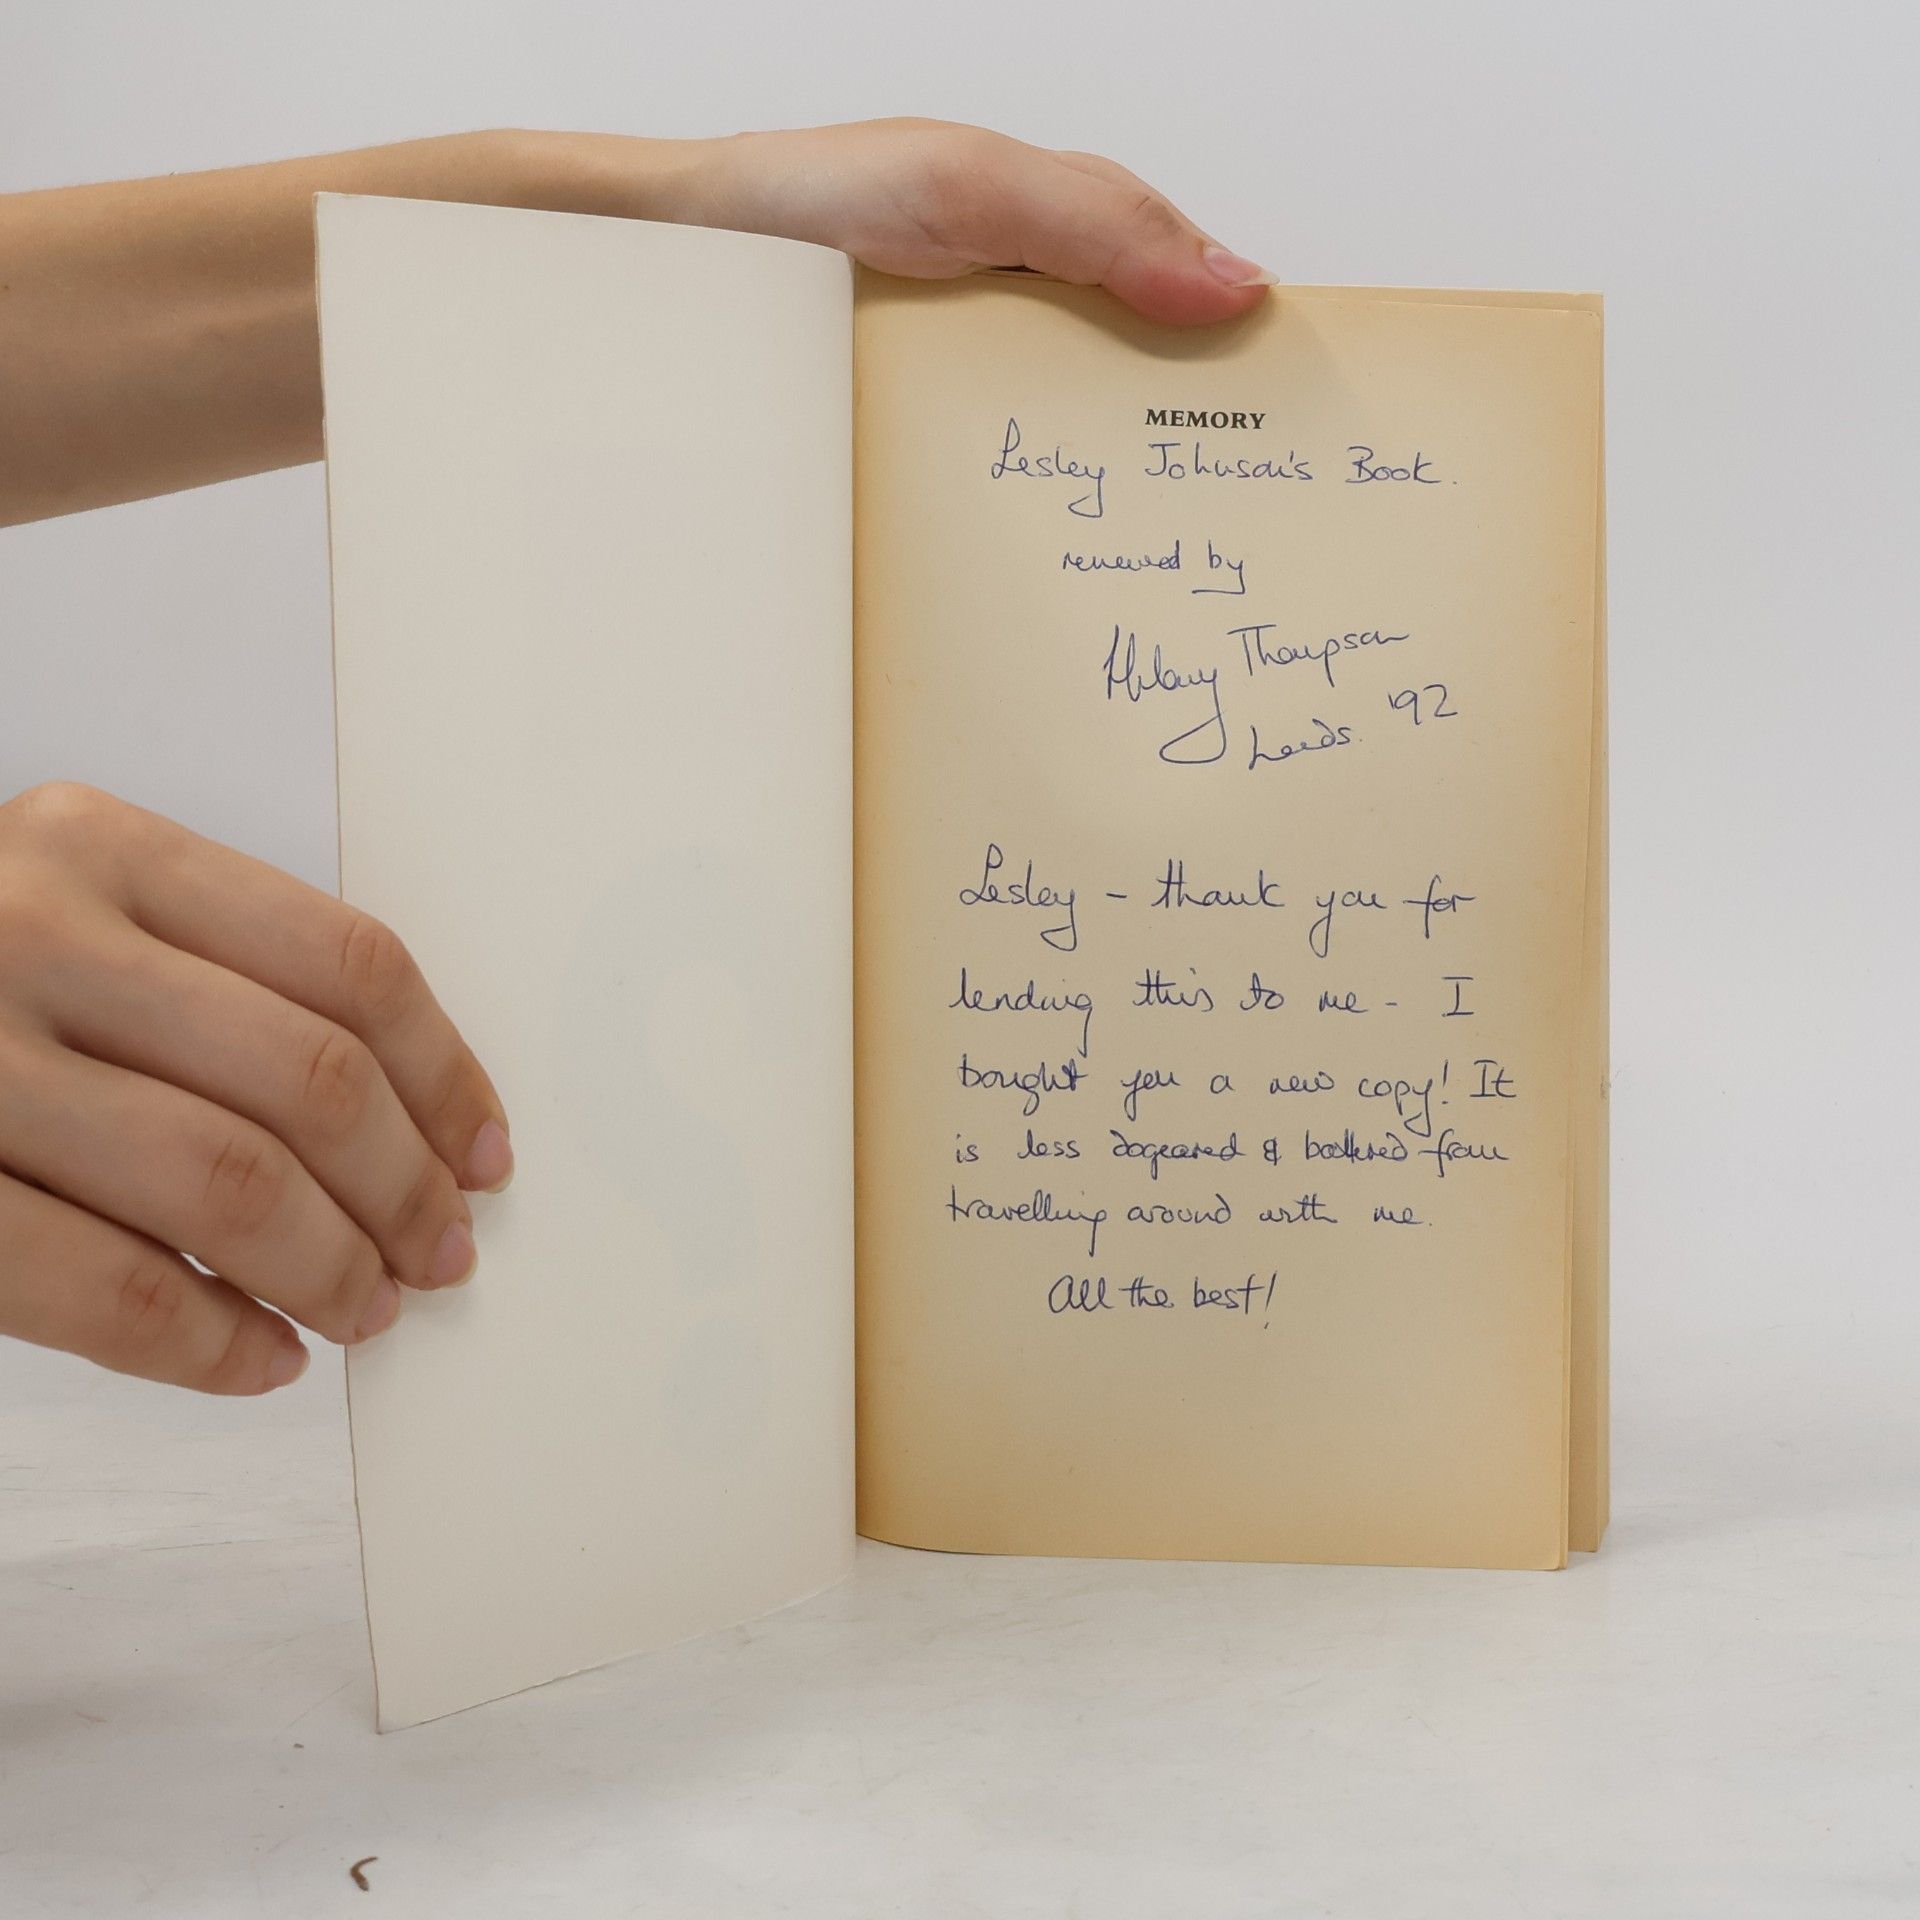 MEMORY
Lesley Johnson's Book.
renewed by
Hilary Thompson
Leeds. '92
Lesley - thank you for
lending this to me - I
bought you a new copy! It
is less dogeared & battered from
travelling around with me.
All the best!